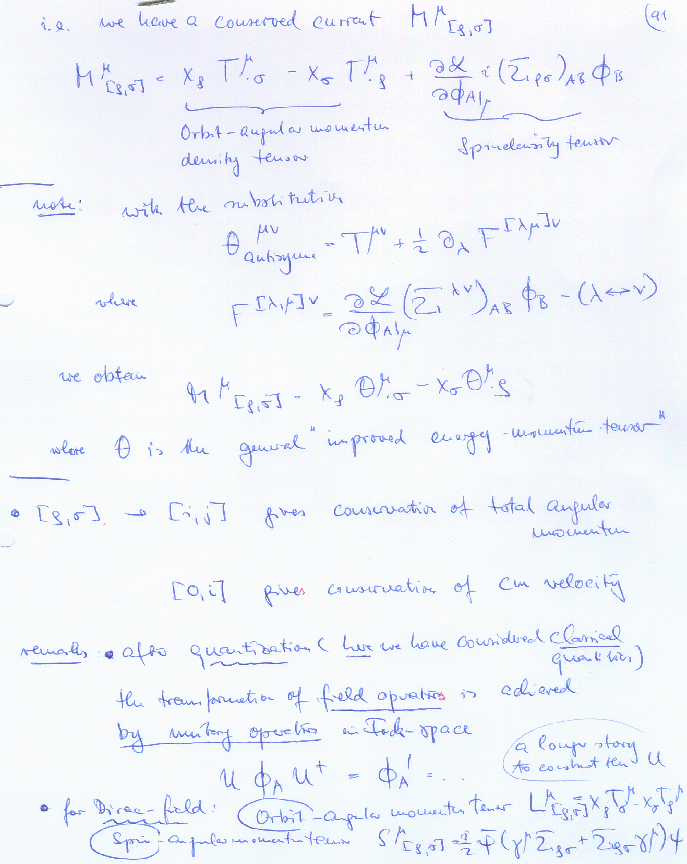 i.e. we have a conserved current M^μ_[ρ,σ] (91
M^μ_[ρ,σ] = x_ρ T^μ_.σ - x_σ T^μ_.ρ + ∂ℒ/∂ϕ_A|μ i (Σ_ρσ)_AB ϕ_B
Orbit-angular momentum density tensor
Spindensity tensor
note: with the substitution
θ^μν_antisymm = T^μν + 1/2 ∂_λ F^[λμ]ν
where F^[λ,μ]ν = ∂ℒ/∂ϕ_A|μ (Σ^λν)_AB ϕ_B - (λ↔ν)
we obtain
M^μ_[ρ,σ] = x_ρ θ^μ_.σ - x_σ θ^μ_.ρ
where θ is the general "improved energy-momentum tensor"
• [ρ,σ] → [i,j] gives conservation of total angular
momentum
[0,i] gives conservation of cm velocity
remarks • after quantization (here we have considered classical
quantities)
the transformation of field operators is achieved
by unitary operators in Fock-space
U ϕ_A U^+ = ϕ_A' = ...
a longer story
to construct then U
• for Dirac-field: Orbit-angular momentum tensor L^μ_[ρ,σ] = x_ρ T^μ_σ - x_σ T^μ_ρ
Spin-angular momentum tensor S^μ_[ρ,σ] = 1/2 ψ̄ (γ^μ Σ_ρσ + Σ_ρσ γ^μ) ψ